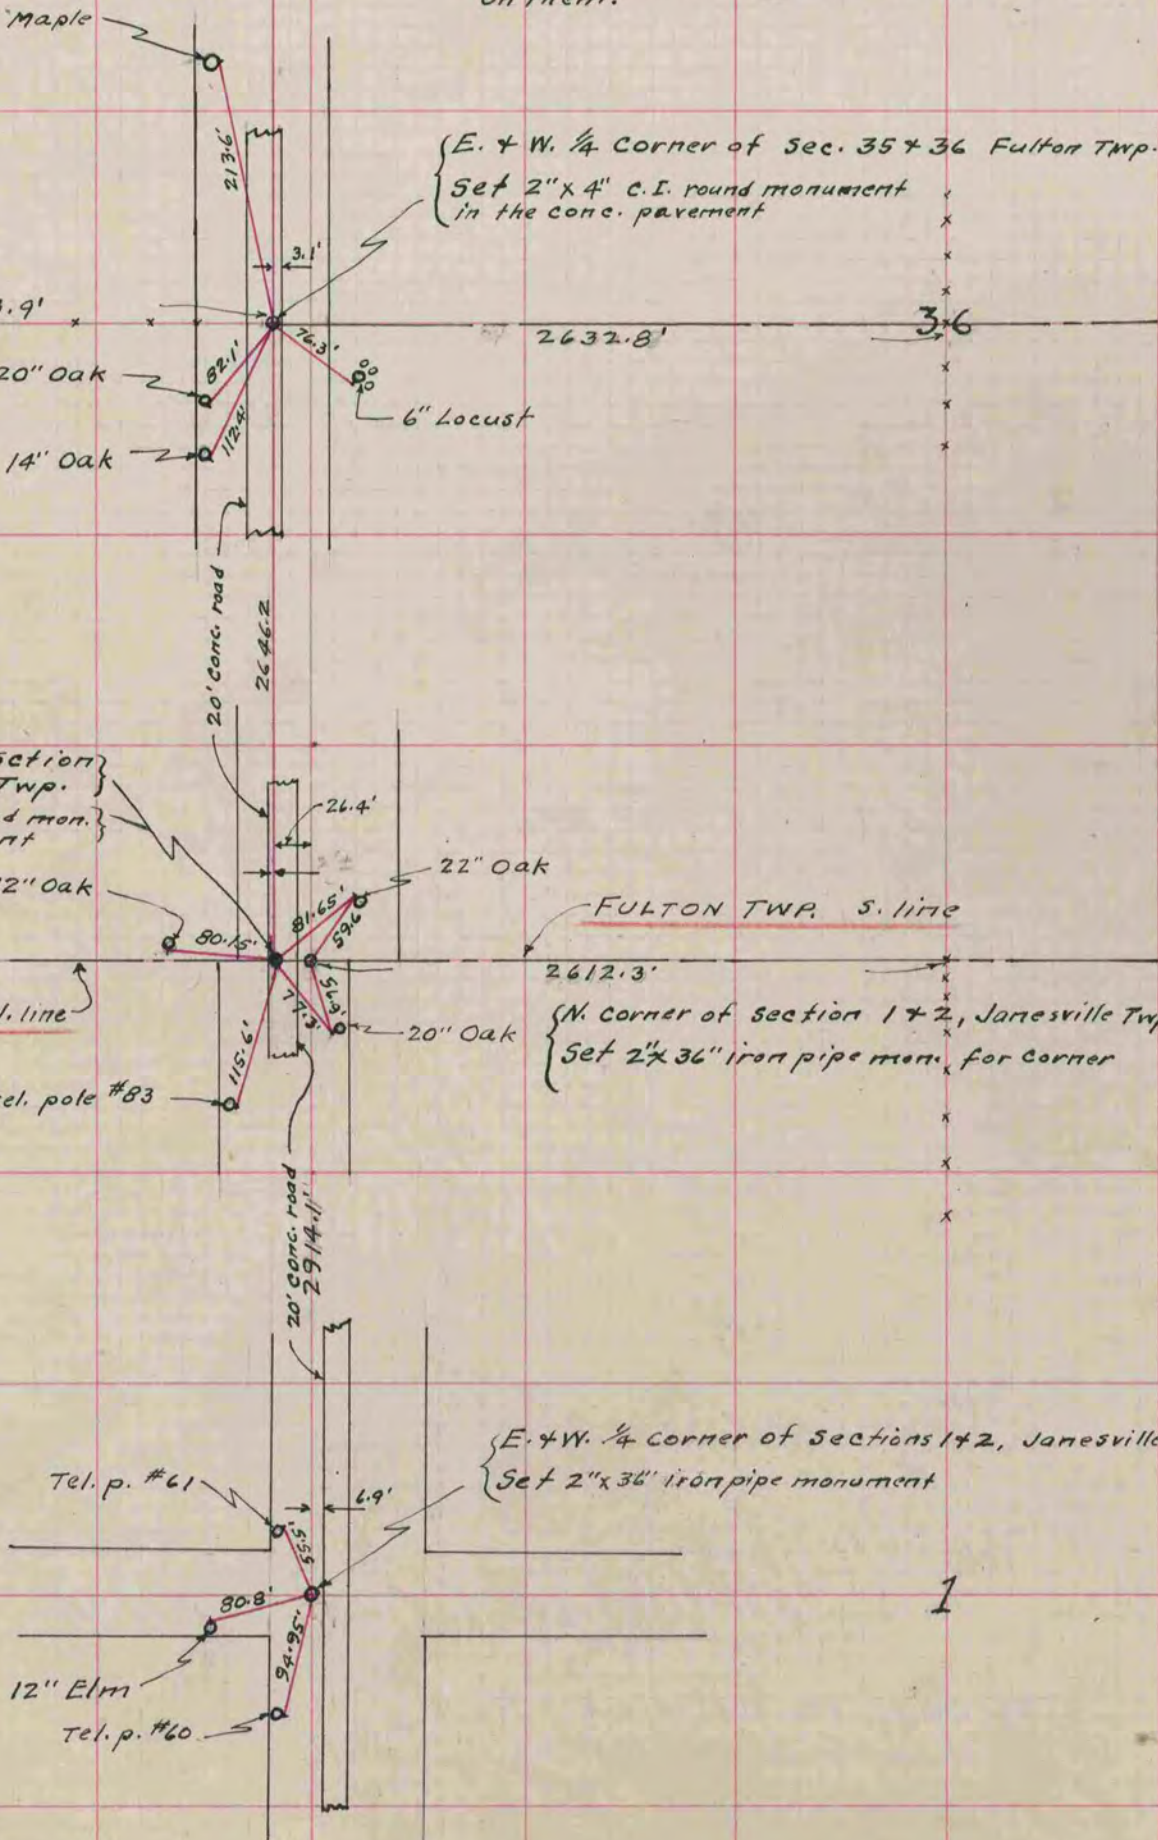 on them.
Maple
213.6'
E. & W. ¼ Corner of Sec. 35 & 36 Fulton Twp.
Set 2" x 4" C.I. round monument
in the conc. pavement
3.1'
.9'
76.3'
2632.8'
36
20" Oak
82.1'
6" Locust
14" Oak
112.4'
20' conc. road
2646.2
ction
Twp.
d mon.
nt
26.4'
2" Oak
22" Oak
81.65'
59.6
80.15'
FULTON TWP. S. line
2612.3'
. line
56.6'
77.3'
20" Oak
N. Corner of section 1 & 2, Janesville Twp
Set 2" x 36" iron pipe mon. for corner
115.6'
el. pole #83
20' conc. road
2914.1'
E. & W. ¼ Corner of Sections 1 & 2, Janesville
Set 2" x 36" iron pipe monument
Tel. p. #61
6.9'
55.5'
80.8'
94.95'
1
12" Elm
Tel. p. #60